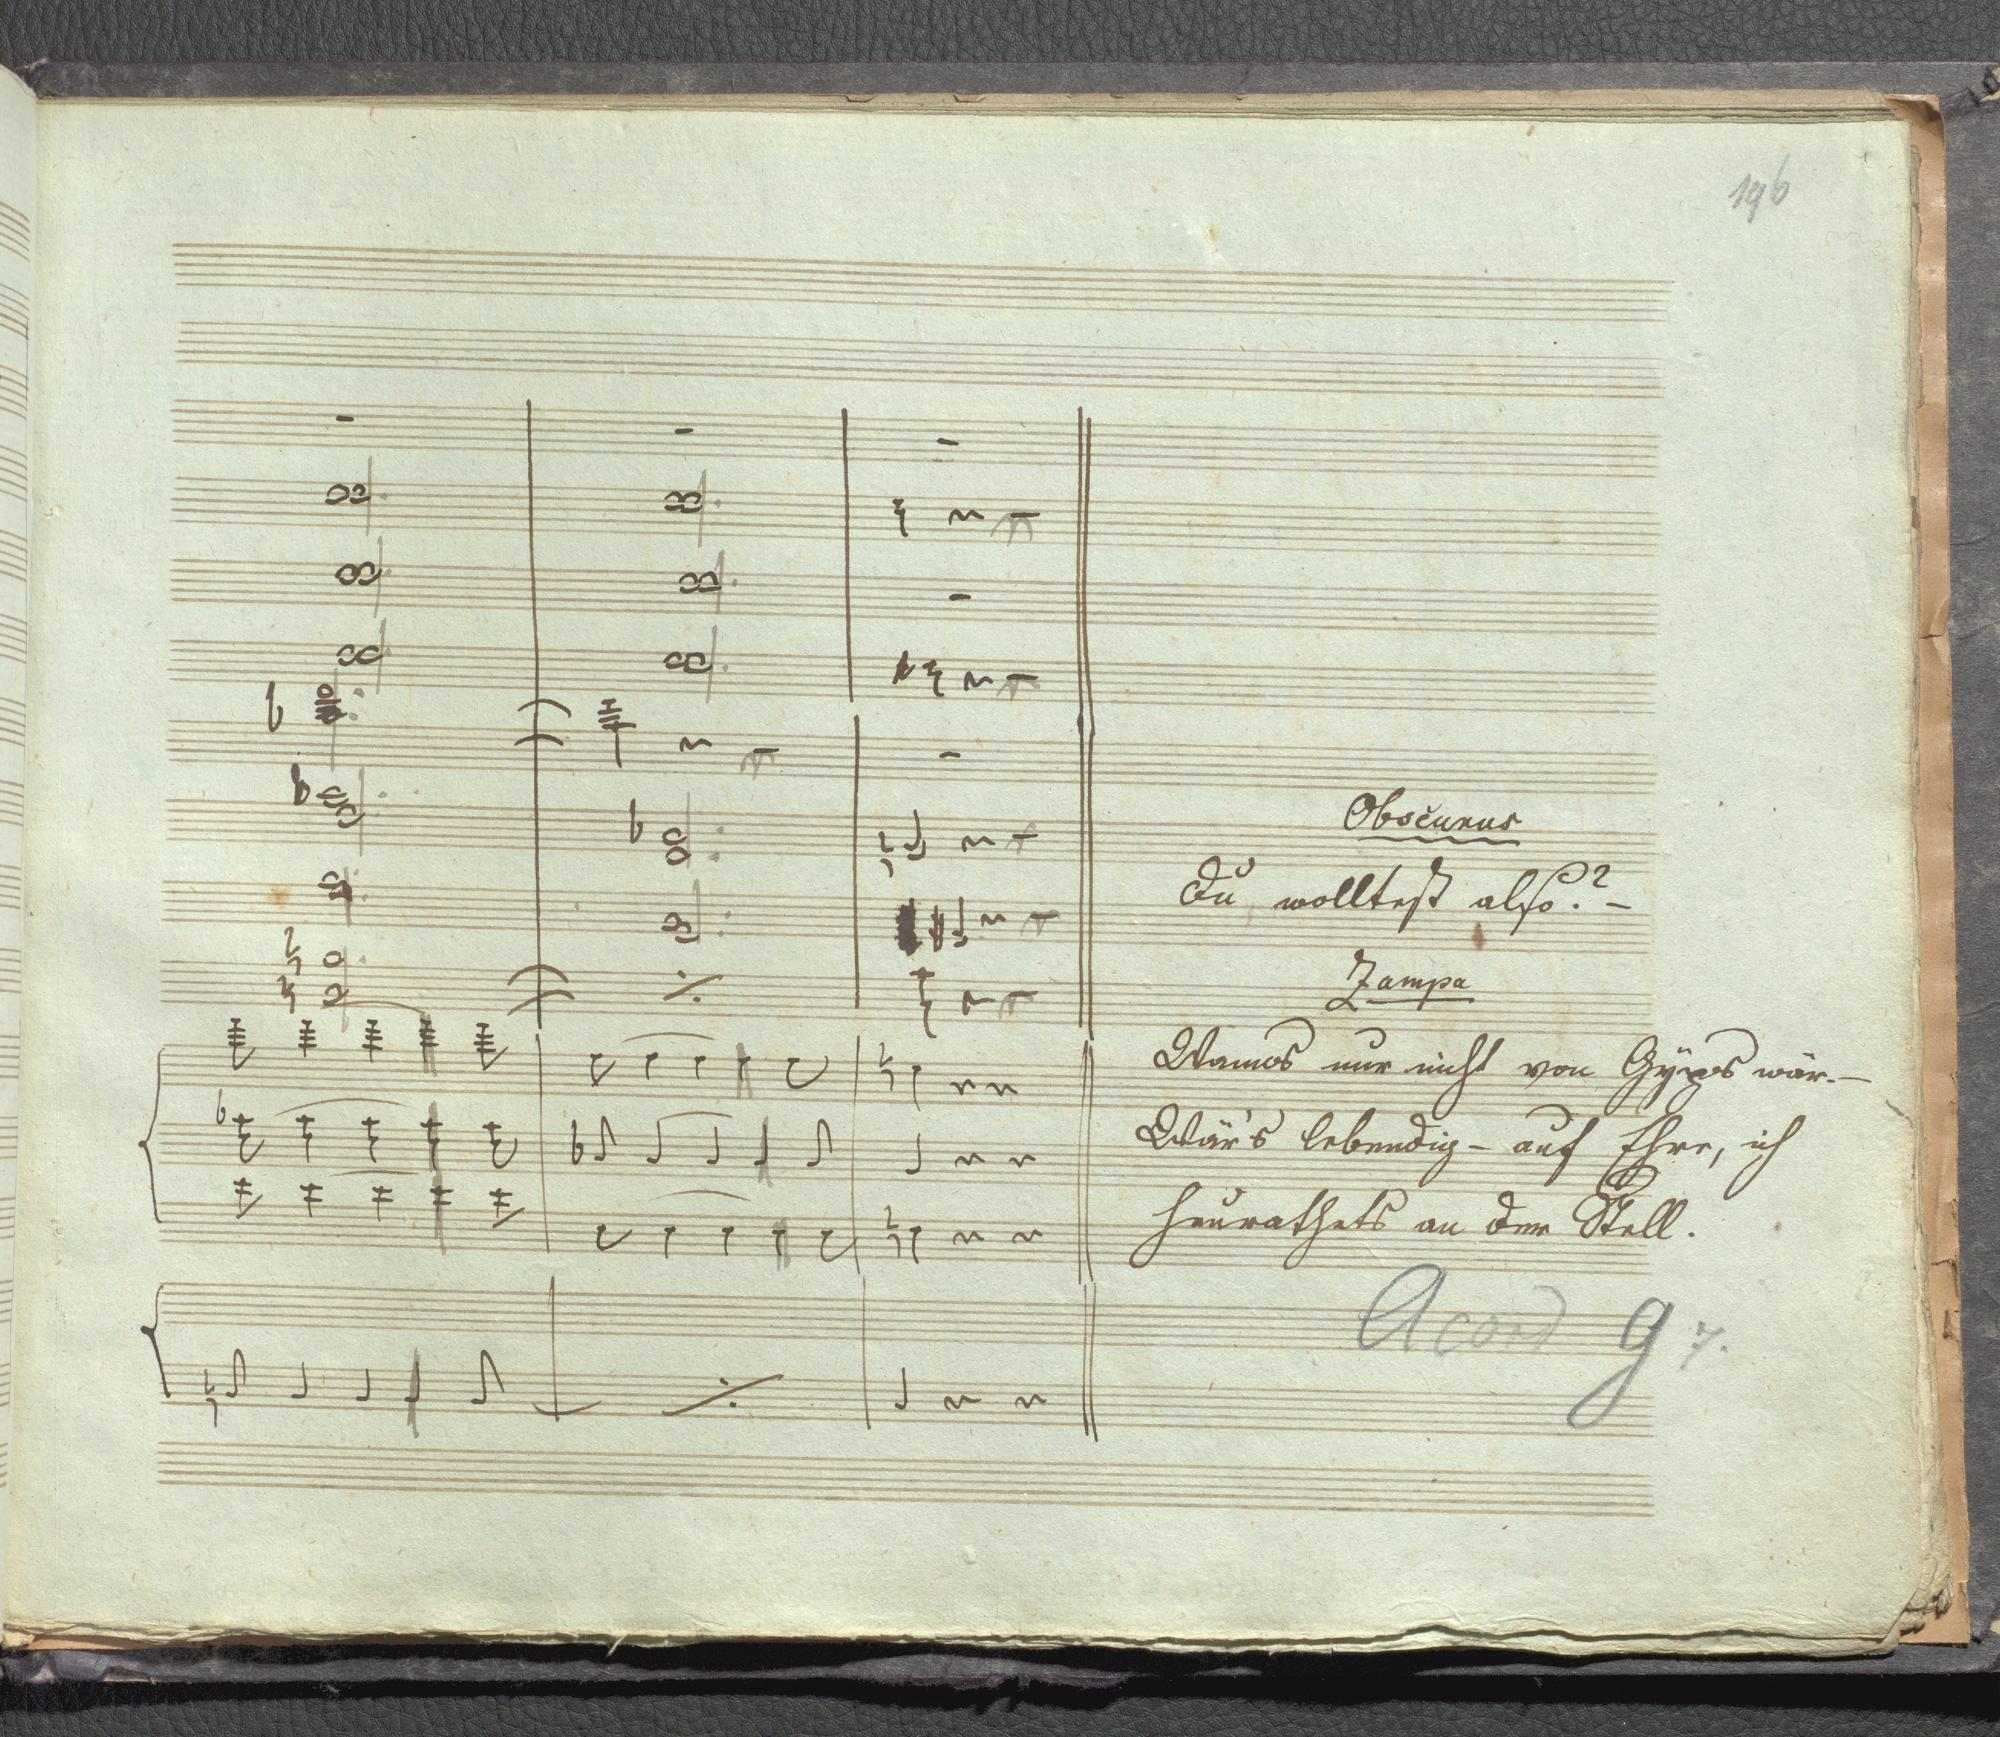 196
Obscurus
Du wolltest also? –
Zampa
Wanns nur nicht von Gÿps wär. –
Wär's lebendig – auf Ehre, ich
heurathets an der Stell.
Acord G 7.